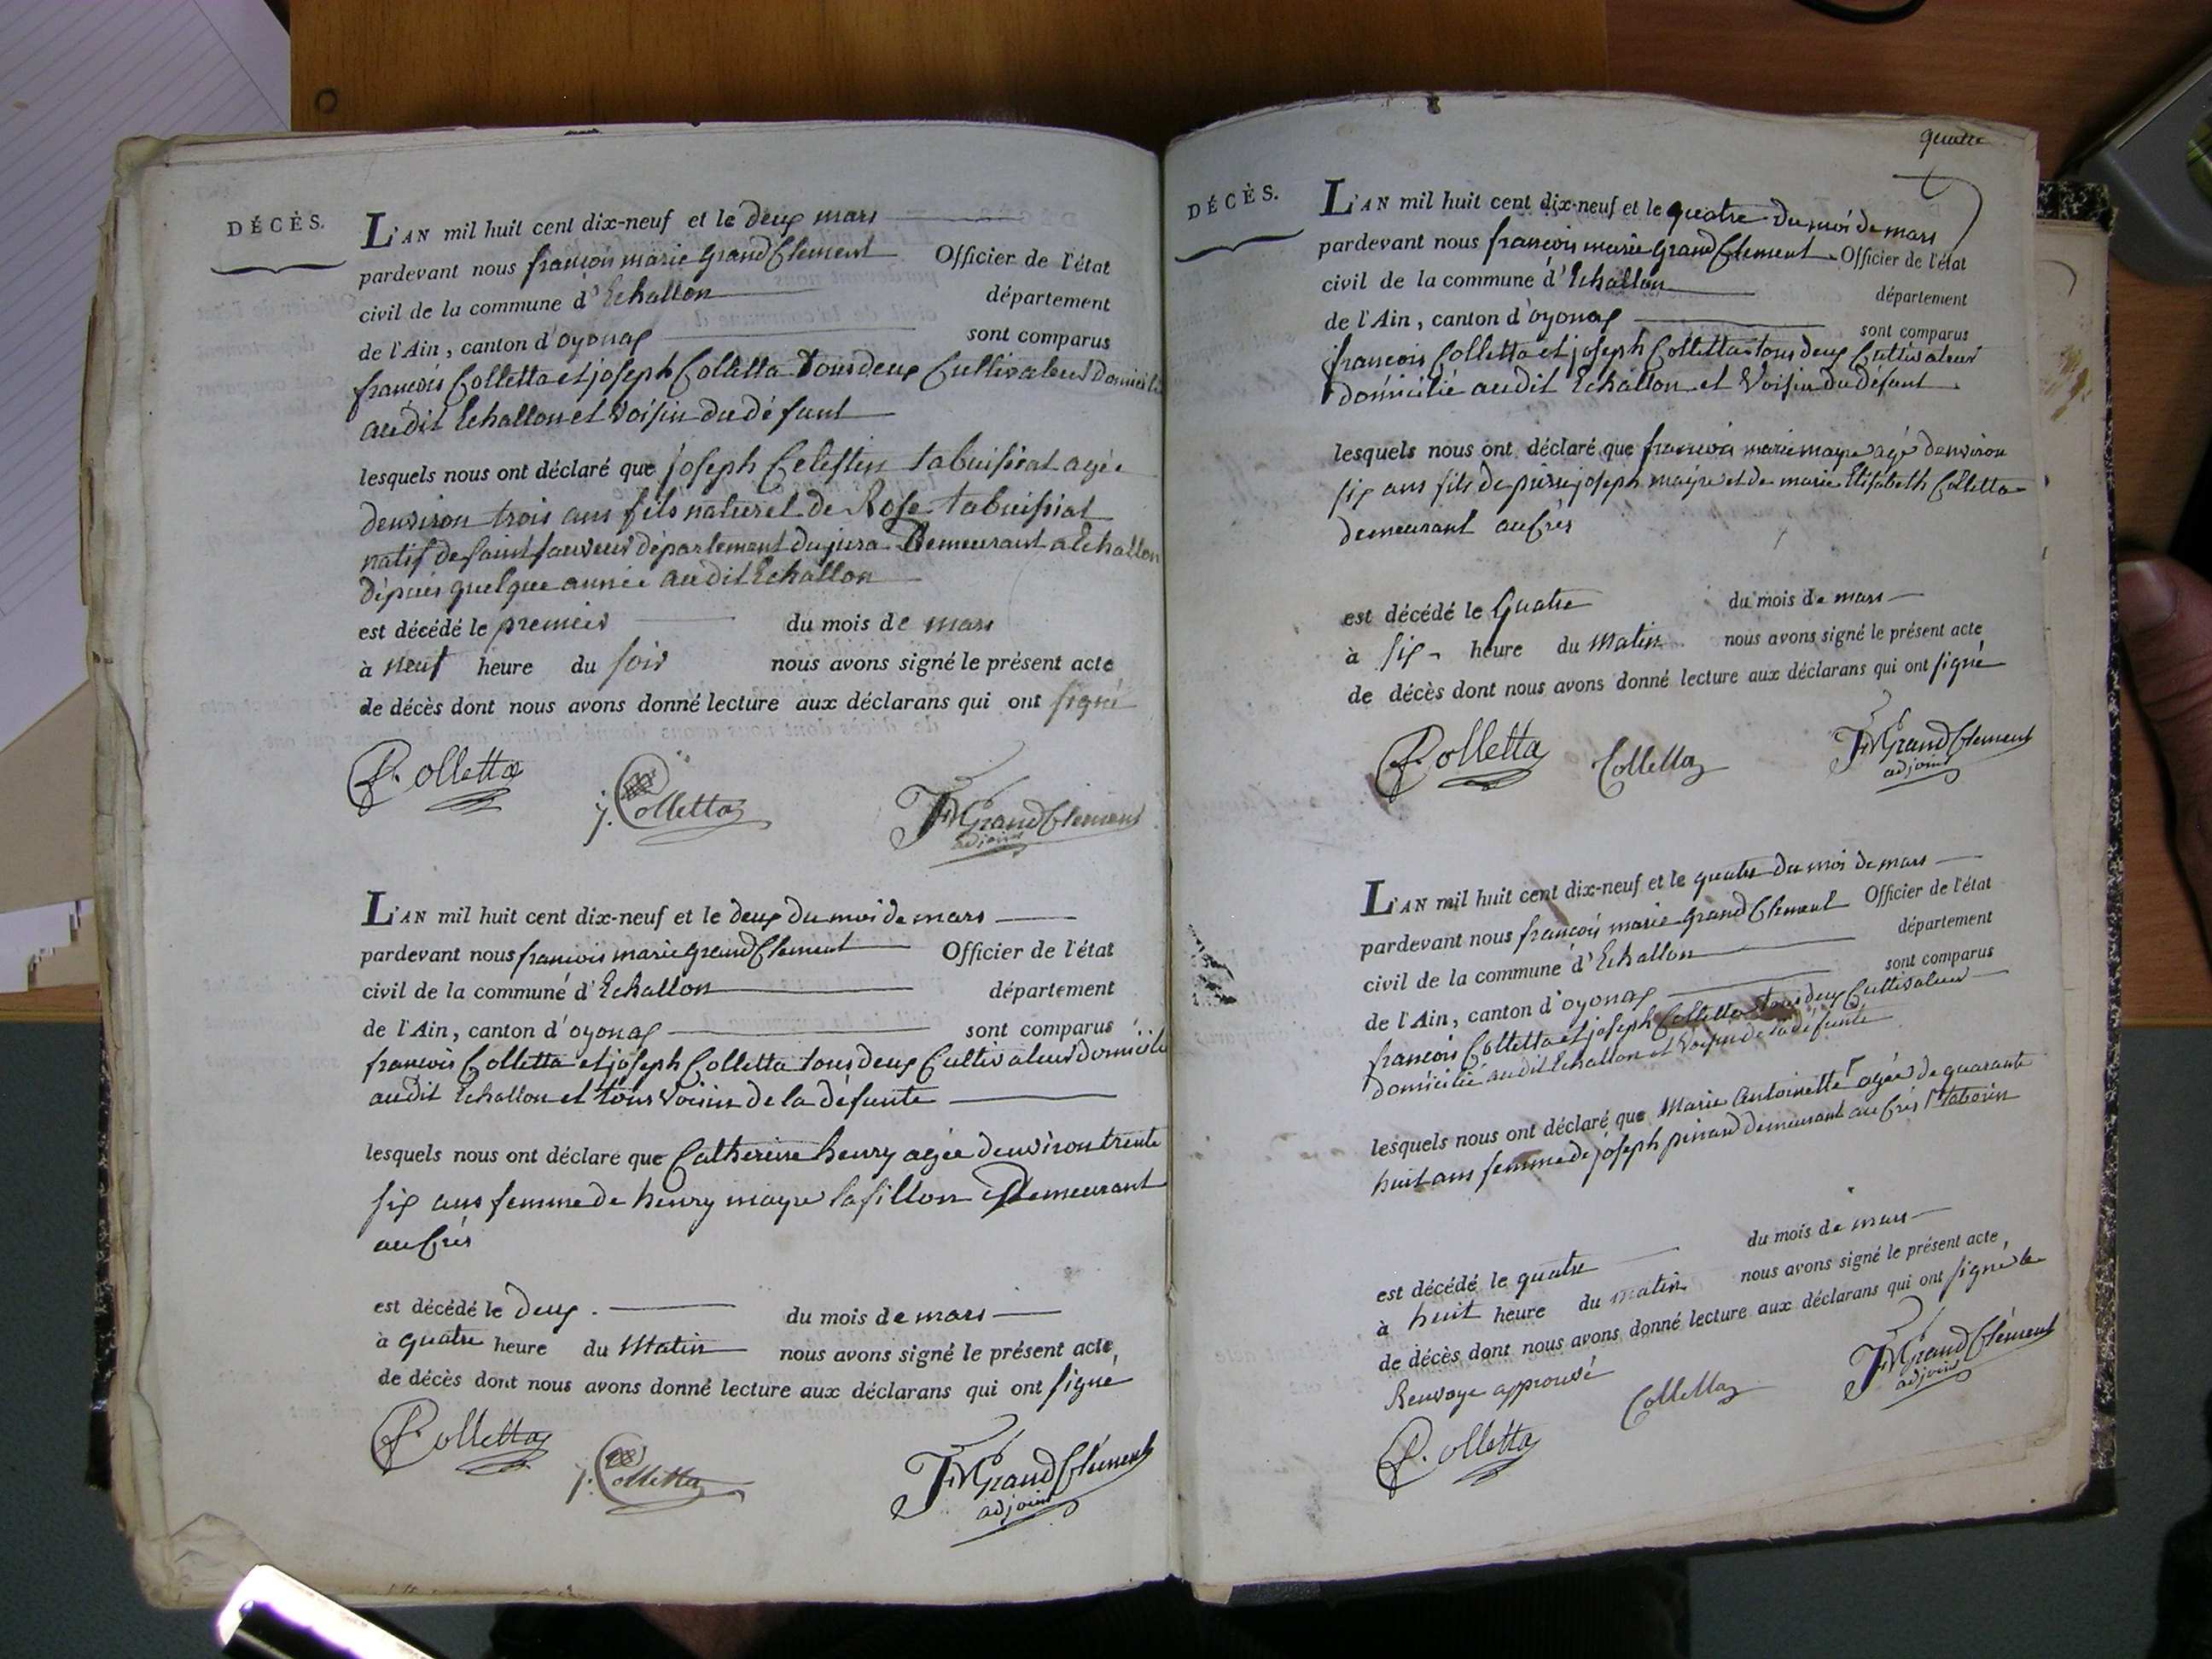 DÉCÈS.
L'AN mil huit cent dix-neuf et le deux mars
pardevant nous françois marie GrandClement Officier de l'état
civil de la commune d'Echallon département
de l'Ain, canton d'oyonax sont comparus
françois Colletta et joseph Colletta Tous deux Cultivateur Domicilié
audit Echallon et Voisin du défunt
lesquels nous ont déclaré que joseph Celestin tabuissiat agée
denviron trois ans fils naturel de Rose tabuissiat
natif de saint sauveur département du jura Demeurant a Echallon
dépuis quelque année audit Echallon
est décédé le premier du mois de mars
à neuf heure du soir nous avons signé le présent acte
de décès dont nous avons donné lecture aux déclarans qui ont signé
f. Colletta
j. Colletta
FMGrandClement
adjoint
L'AN mil huit cent dix-neuf et le deux du moi de mars
pardevant nous francois marie GrandClement Officier de l'état
civil de la commune d'Echallon département
de l'Ain, canton d'oyonax sont comparus
francois Colletta et joseph Colletta tous deux Cultivateur domicilié
audit Echallon et tous Voisin de la défunte
lesquels nous ont déclaré que Catherine henry agée denviron trente
six ans femme de henry mayre lasillon Demeurant
au Crés
est décédé le deux. du mois de mars
à quatre heure du Matin nous avons signé le présent acte,
de décès dont nous avons donné lecture aux déclarans qui ont signé
f. Colletta
j. Colletta
FMGrandClément
adjoint
quatre
DÉCÈS.
L'AN mil huit cent dix-neuf et le quatre du moi de mars
pardevant nous françois marie GrandClement Officier de l'état
civil de la commune d'Echallon département
de l'Ain, canton d'oyonax sont comparus
francois Colletta et joseph Colletta tous deux Cultivateur
domicilié audit Echallon et Voisin du défunt
lesquels nous ont déclaré que francois marie mayre agé denviron
six ans fils de pierre joseph mayre et de marie Elisabeth Colletta
demeurant au Crés
est décédé le Quatre du mois de mars
à six heure du Matin nous avons signé le présent acte
de décès dont nous avons donné lecture aux déclarans qui ont signé
f. Colletta
Colletta
FMGrandClement
adjoint
L'AN mil huit cent dix-neuf et le quatre du moi de mars
pardevant nous francois marie GrandClement Officier de l'état
civil de la commune d'Echallon département
de l'Ain, canton d'oyonax sont comparus
francois Colletta et joseph Colletta tous deux Cultivateur
domicilié audit Echallon et Voisin de la défunte
lesquels nous ont déclaré que Marie Antoinette agée de quarante
huit ans femme de joseph demeurant au Crés
est décédé le quatre du mois de mars
à huit heure du matin nous avons signé le présent acte,
de décès dont nous avons donné lecture aux déclarans qui ont signé le
Renvoye approuvé
Colletta
FMGrandClément
adjoint
f. Colletta